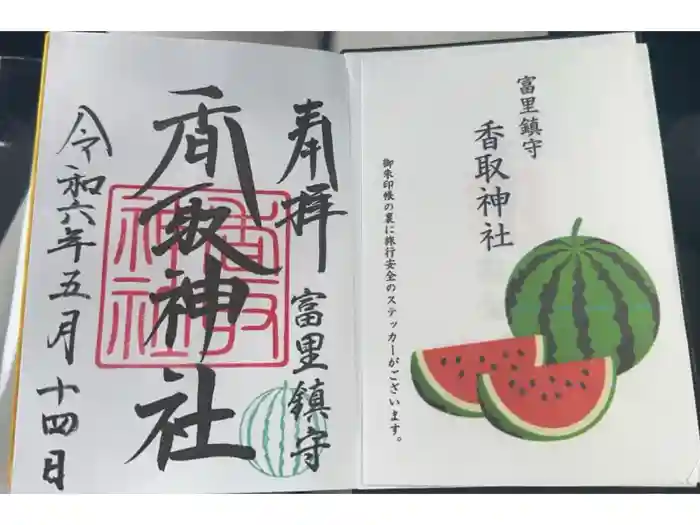 富里鎮守
香取神社
御朱印帳の裏に旅行安全のステッカーがございます。
奉拝 富里鎮守
香取神社
令和六年五月十四日
香取
神社